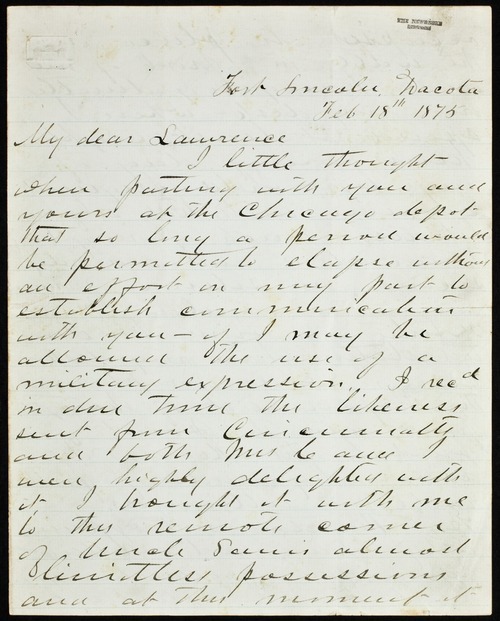 Fort Lincoln, Dacota
Feb 18th 1875
My dear Lawrence
I little thought
when parting with you and
yours at the Chicago depot
that so long a period would
be permitted to elapse without
an effort on my part to
establish communication
with you – if I may be
allowed the use of a
military expression. I recd
in due time the likeness
sent from Cincinnatti
and both Mrs C and I
were highly delighted with
it I brought it with me
to this remote corner
of Uncle Sam's almost
limitless possessions
and at this moment it